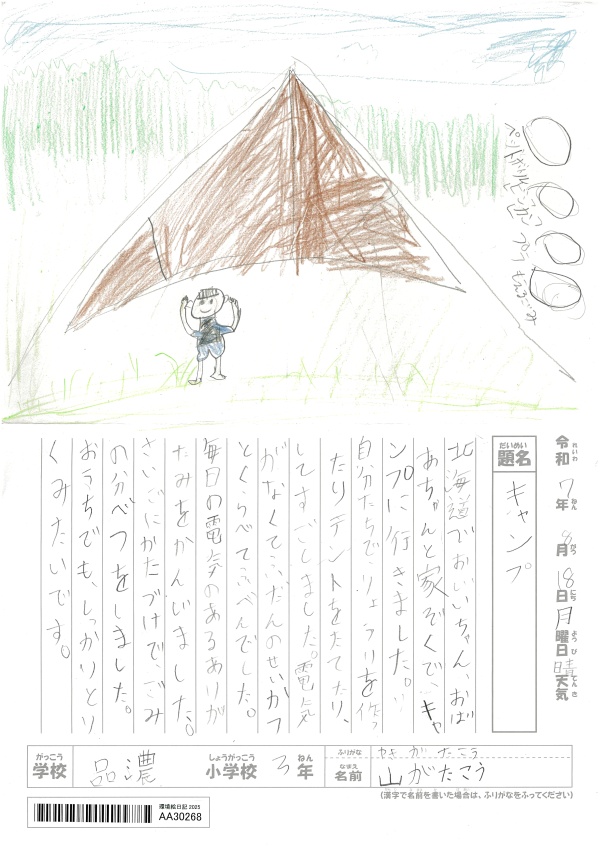 ペットボトル
ビン
カン
プラ
もえるごみ
令和 7年 8月 18日 月曜日 晴天気
れいわ ねん がつ にち ようび てんき
だいめい
題名
キャンプ
北海道でおじいちゃん、おば
あちゃんと家ぞくで、キャ
ンプに行きました。
自分たちでりょうりを作っ
たりテントをたてたり、
してすごしました。電気
がなくてふだんのせいかつ
とくらべてふべんでした。
毎日の電気のあるありが
たみをかんじました。
さいごにかたづけでごみ
の分べつをしました。
おうちでも、しっかりとり
くみたいです。
がっこう
学校
品濃
しょうがっこう
小学校
3
ねん
年
ふりがな
やまがたこう
なまえ
名前
山がたこう
(漢字で名前を書いた場合は、ふりがなをふってください)
環境絵日記 2025
AA30268